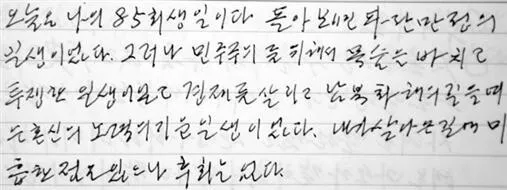 오늘은 나의 85회 생일이다. 돌아보면 파란만장의
일생이었다. 그러나 민주주의를 위해서 목숨을 바치고
투쟁한 일생이었고 경제를 살리고 남북 화해의 길을 여
는 혼신의 노력의 기울인 일생이었다. 내가 살아온 길에 미
흡한 점도 있으나 후회는 없다.